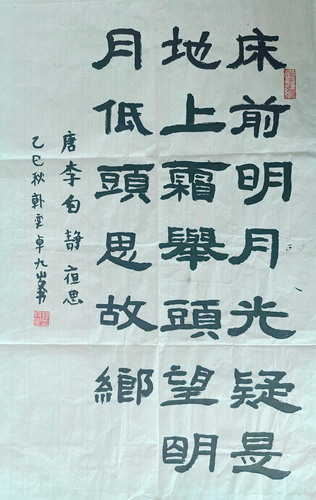 床前明月光疑是
地上霜舉頭望明
月低頭思故鄉
唐李白靜夜思
乙巳秋韩奕卓九岁书